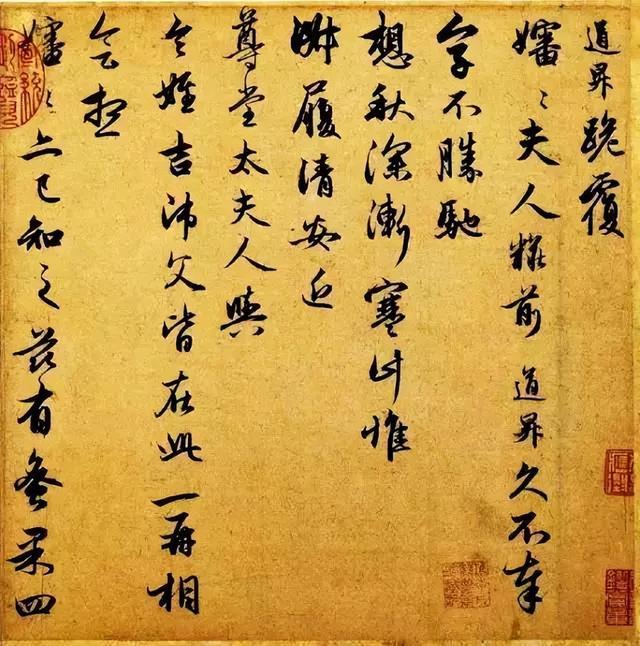 道昇跪覆
嬸〻夫人粧前道昇久不奉
字不勝馳
想秋深漸寒計惟
淑履清安近
尊堂太夫人與
令姪吉師父皆在此一再相
會想
嬸〻亦已知之茲有蚤果四